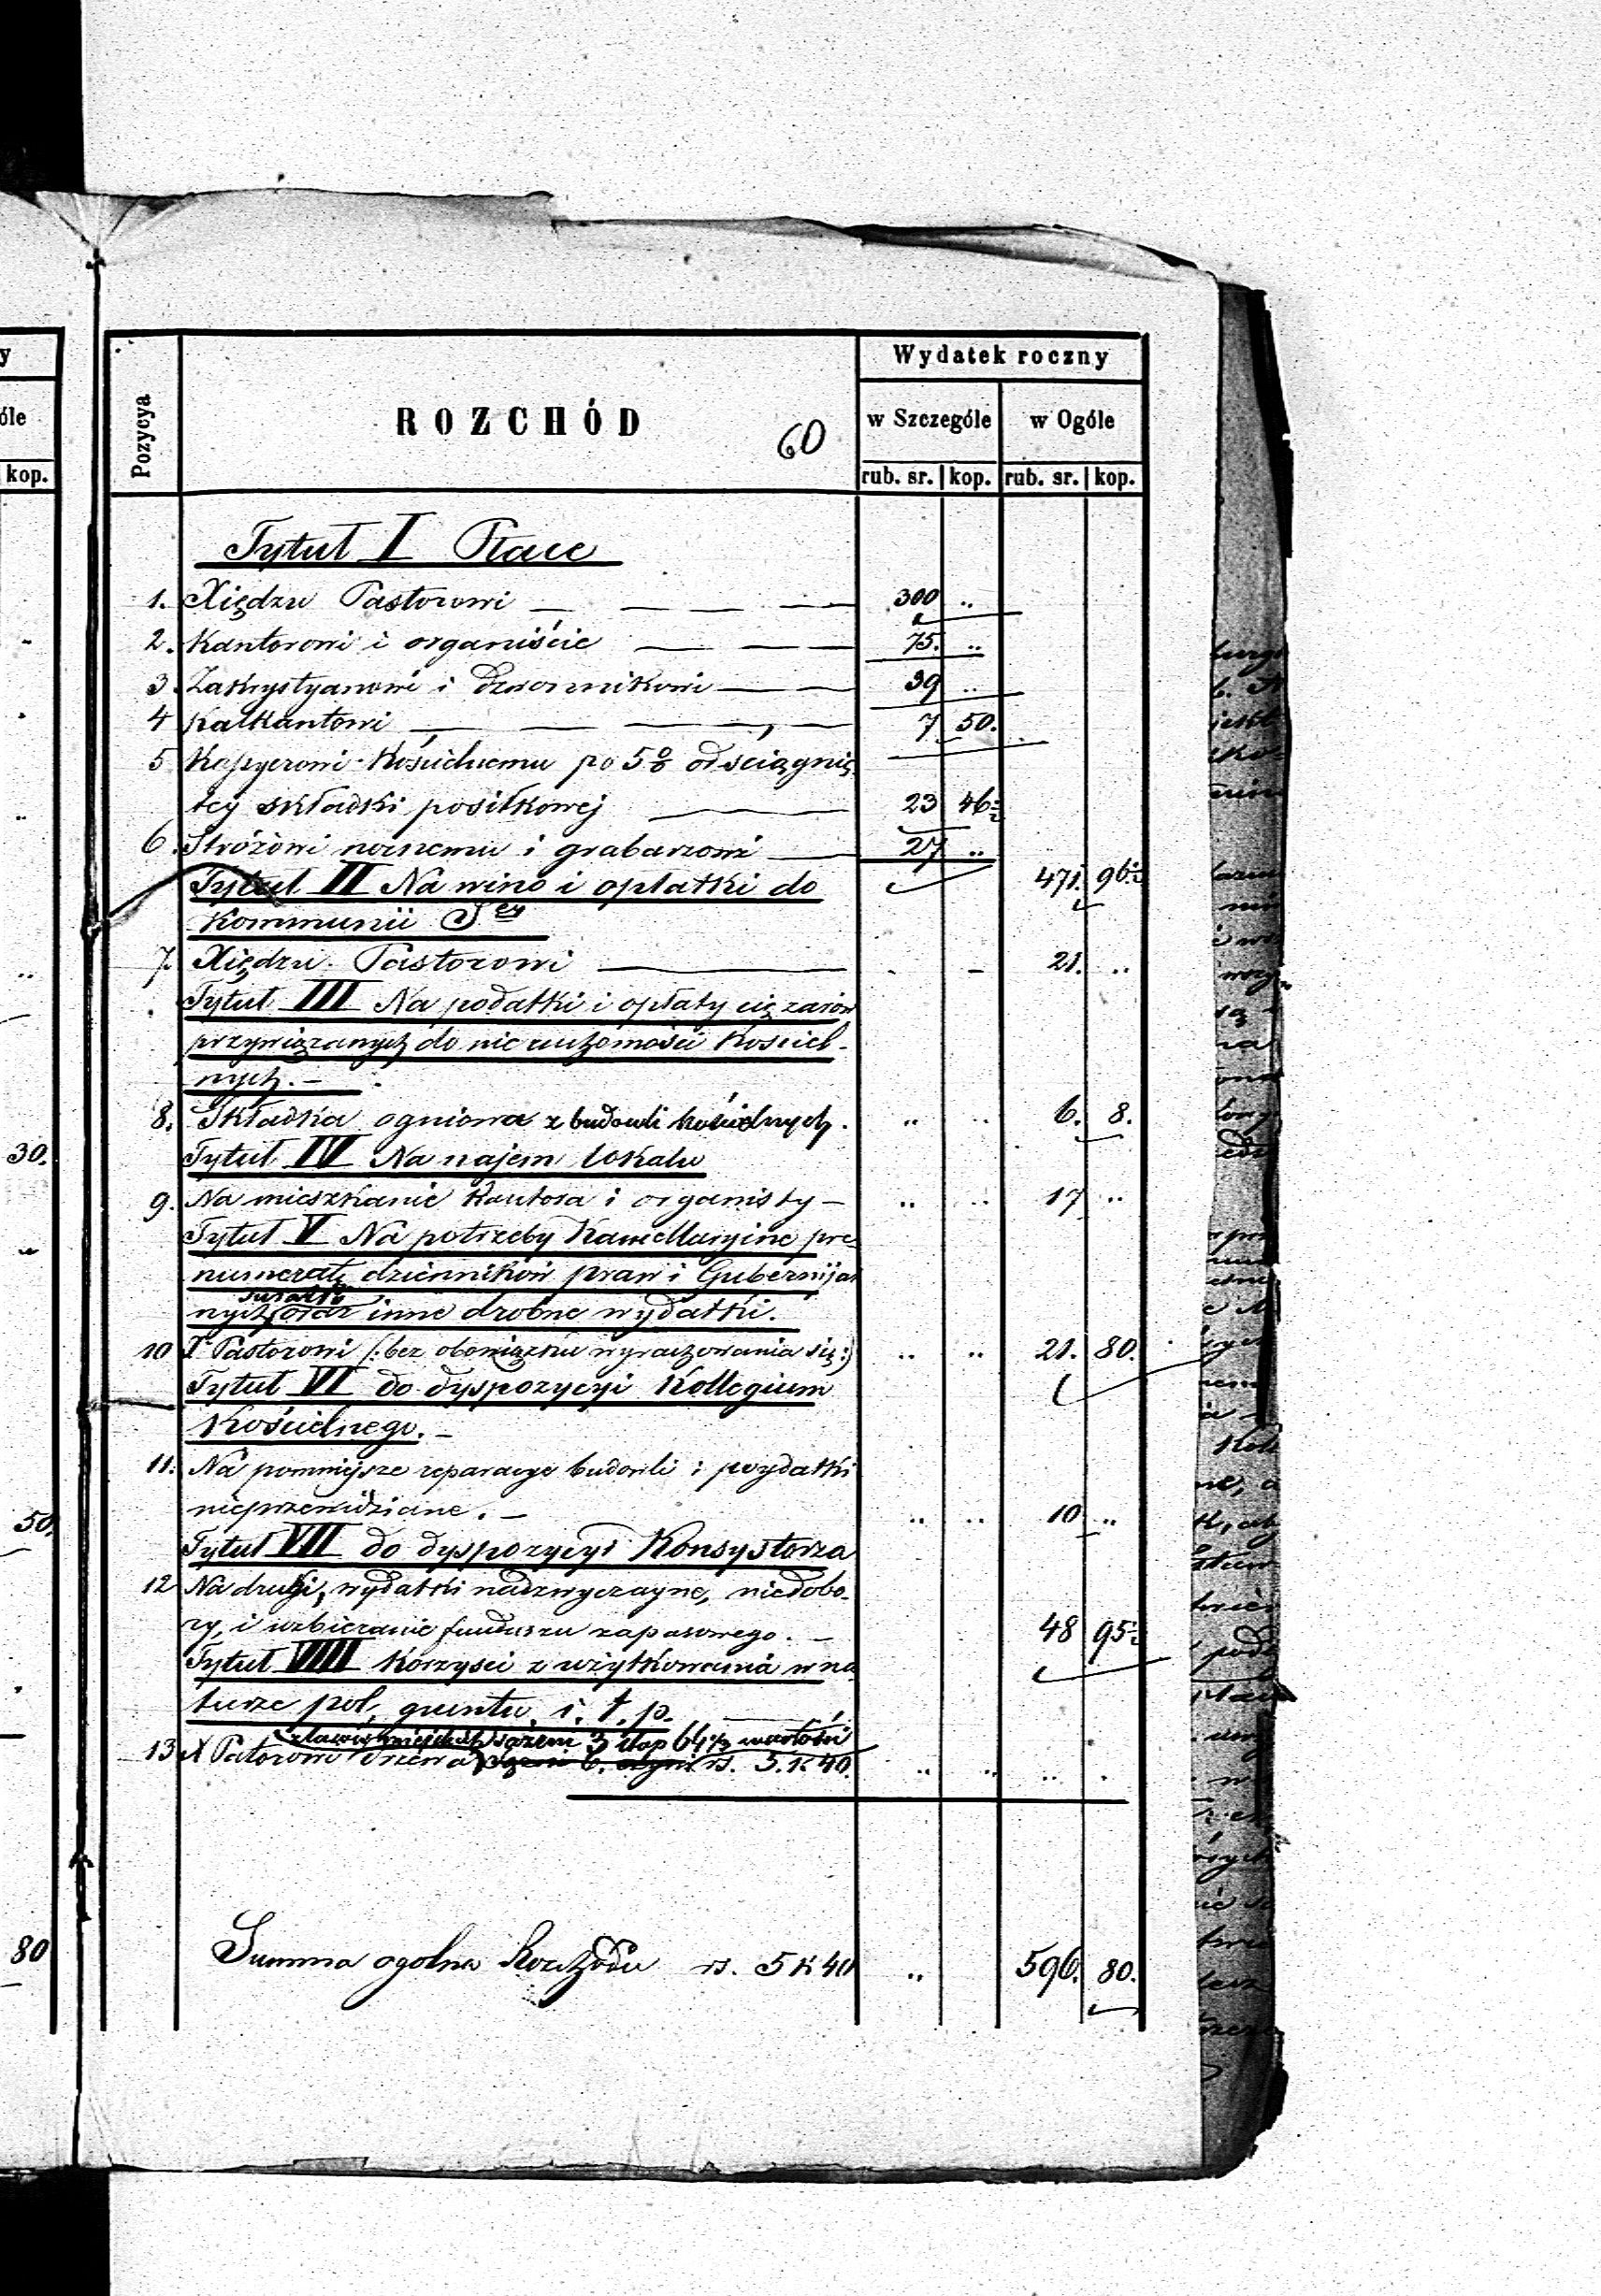 y
óle
kop.
30.
50.
80
Pozycya
ROZCHÓD
60
Wydatek roczny
w Szczególe
w Ogóle
rub. sr. kop. rub. sr. kop.
Tytuł I Płace
1. Xiędzu Pastorowi — — — — 300 ..
2. Kantorowi i organiście — — — 75. ..
3. Zakrystyanowi i dzwonnikowi — — 39 ..
4 Kalkantowi — — — — 7 50.
5 Kassyerowi Kościelnemu po 5% od ściągnię
tej składki posiłkowej — 23 46½
6. Stróżowi nocnemu i grabarzowi — 27 ..
471. 96½
Tytuł II Na wino i opłatki do
Kommunii S
7. Xiędzu Pastorowi — 21. ..
Tytuł III Na podatki i opłaty ciężarów
przywiązanych do nieruchomości Kościel-
nych. —
8. Składka ogniowa z budowli kościelnych. .. .. 6. 8.
Tytuł IV Na najem lokalu
9. Na mieszkanie Kantora i organisty — .. .. 17 ..
Tytuł V Na potrzeby Kancellaryine pre-
numeratę dzienników praw i Gubernijal
nych oraz inne drobne wydatki.
10 X Pastorowi (: bez obowiązku wyrachowania się :) .. .. 21. 80.
Tytuł VI do dyspozycyi Kollegium
Kościelnego. —
11. Na pomniejsze reparacye budowli i wydatki
nieprzewidziane. — .. .. 10 ..
Tytuł VII do dyspozycyi Konsystorza
12 Na długi, wydatki nadzwyczayne, niedobo-
ry, i uzbieranie funduszu zapasowego. — 48 95½
Tytuł VIII Korzyści z użytkowania w na
turze pol, gruntu, i. t. p. —
sążni 3 stop 64 wartości
13 X Patorowi drzewa rs. 5. K 40. .. .. .. .
Summa ogolna Rozchodu rs. 5 K 40 .. 596. 80.